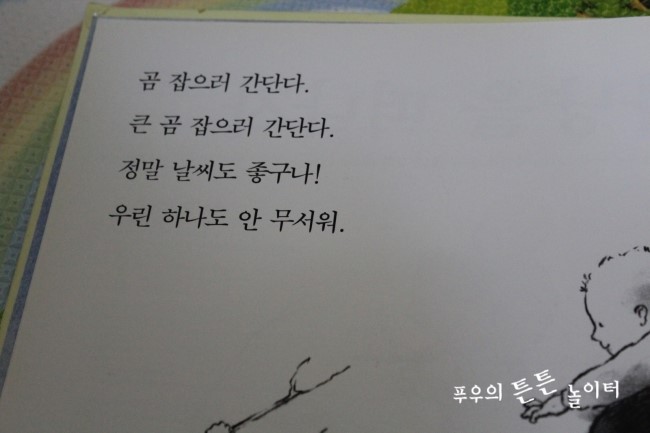 곰 잡으러 간단다.
큰 곰 잡으러 간단다.
정말 날씨도 좋구나!
우린 하나도 안 무서워.
푸우의 튼튼 놀이터